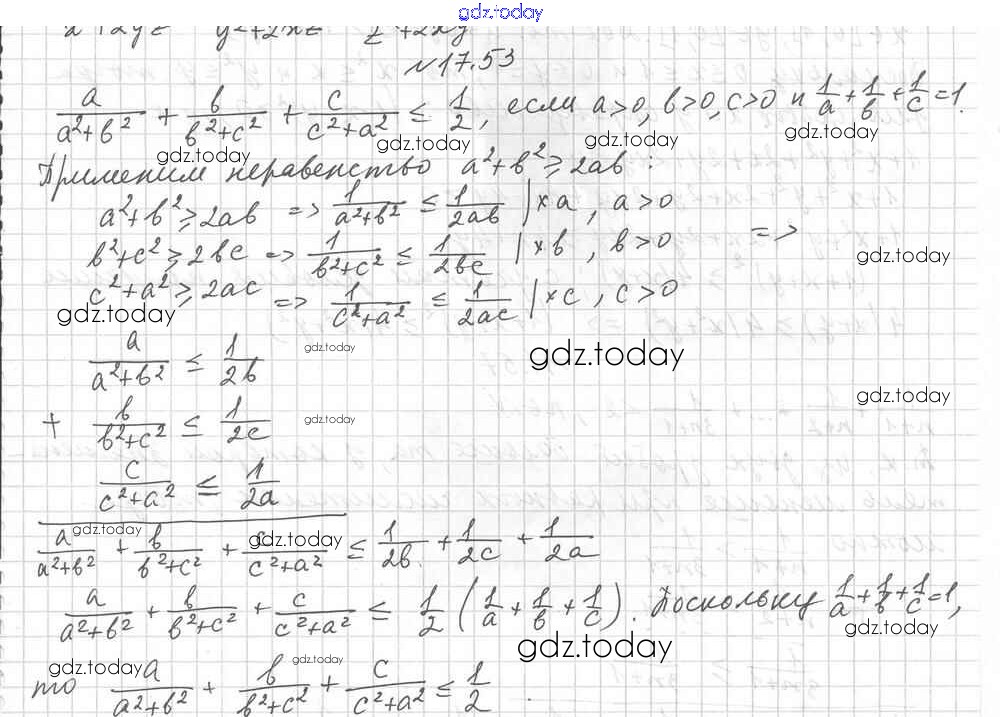 gdz.today
x²+2yz y²+2xz z²+2xy
№17.53
a/(a²+b²) + b/(b²+c²) + c/(c²+a²) ≤ 1/2, если a>0, b>0, c>0 и 1/a + 1/b + 1/c = 1.
gdz.today gdz.today gdz.today gdz.today
Применим неравенство a²+b² ≥ 2ab :
a²+b² ≥ 2ab => 1/(a²+b²) ≤ 1/(2ab) |×a, a>0
b²+c² ≥ 2bc => 1/(b²+c²) ≤ 1/(2bc) |×b, b>0 =>
gdz.today
c²+a² ≥ 2ac => 1/(c²+a²) ≤ 1/(2ac) |×c, c>0
gdz.today
a/(a²+b²) ≤ 1/(2b)
gdz.today gdz.today
gdz.today
+ b/(b²+c²) ≤ 1/(2c)
gdz.today
c/(c²+a²) ≤ 1/(2a)
gdz.today gdz.today
a/(a²+b²) + b/(b²+c²) + c/(c²+a²) ≤ 1/(2b) + 1/(2c) + 1/(2a)
a/(a²+b²) + b/(b²+c²) + c/(c²+a²) ≤ 1/2 (1/a + 1/b + 1/c). Поскольку 1/a + 1/b + 1/c = 1,
gdz.today gdz.today
gdz.today gdz.today
то a/(a²+b²) + b/(b²+c²) + c/(c²+a²) ≤ 1/2.